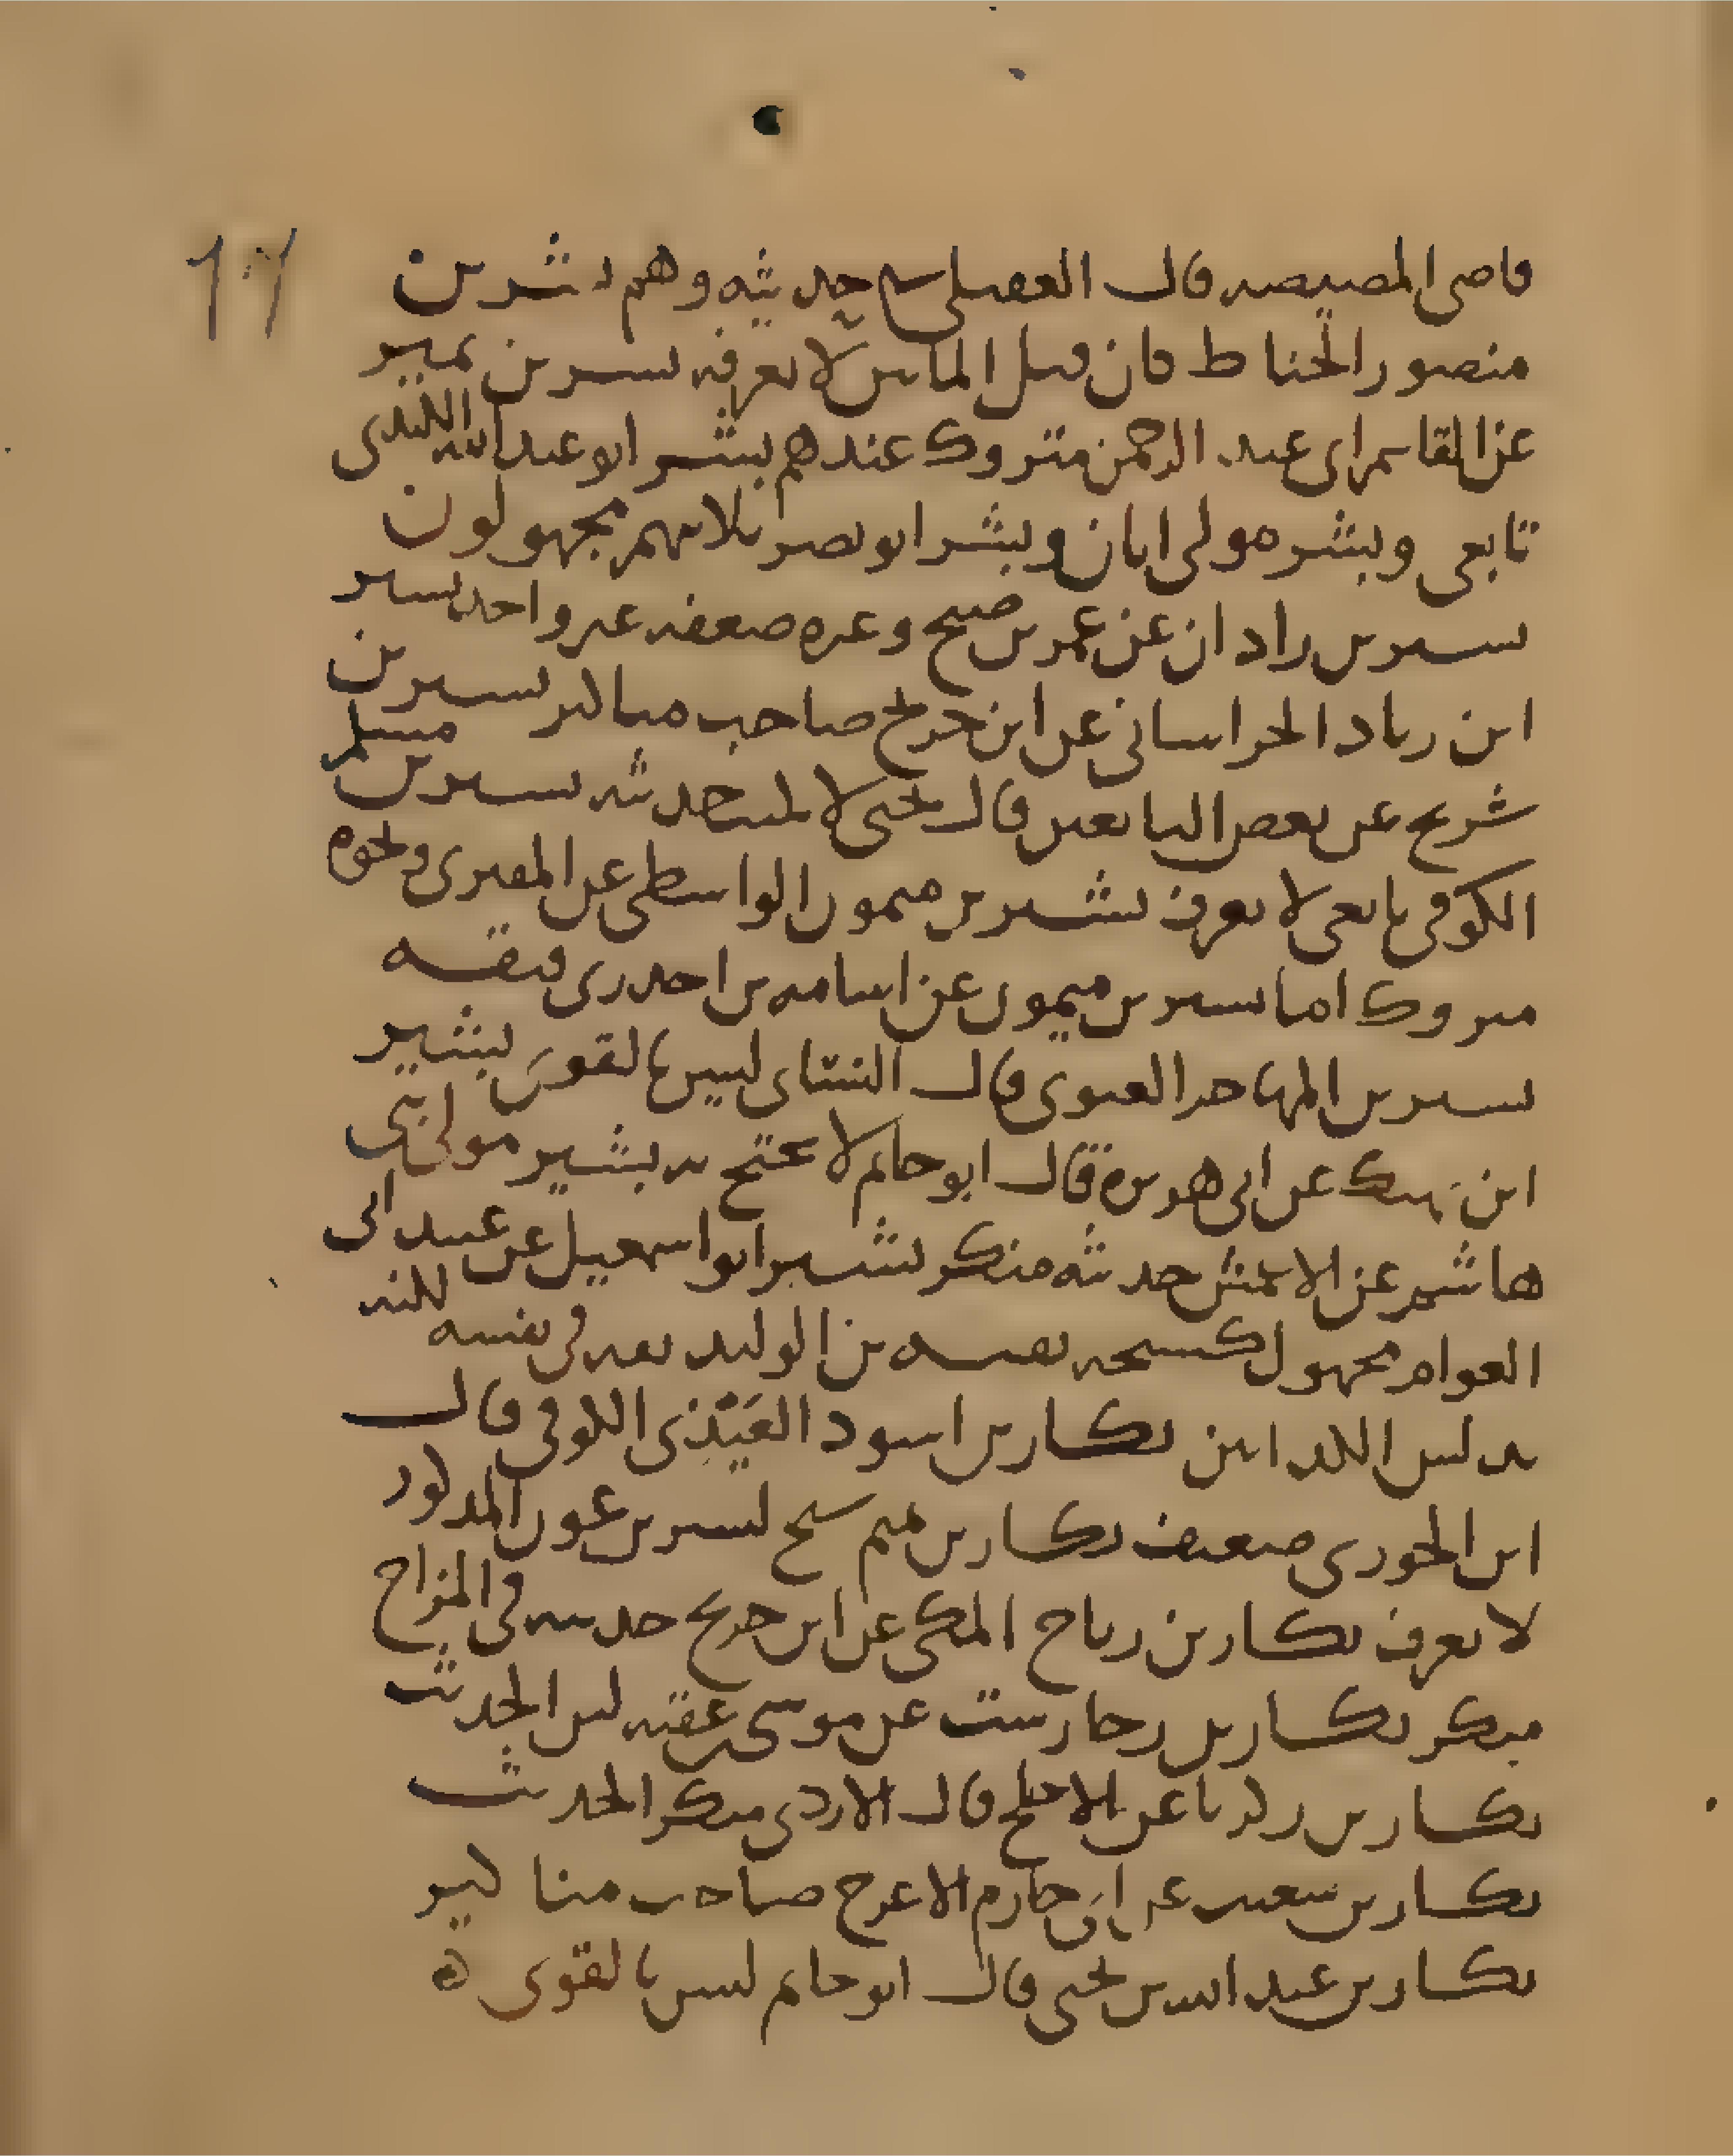 قاضى المصيصه قال العقيلى فى حديثه وهم بشر بن
منصور الحناط فان قيل الماس لا يعرفه بشر بن نمير
عن القاسم ابى عبد الرحمن متروك عندهم بشر ابو عبد الله الكندى
تابعى وبشر مولى ابان وبشر ابو نصر ثلاثتهم مجهولون
بشير بن زاذان عن عمر بن صبح وغيره ضعفه غير واحد بشير
ابن زياد الخراسانى عن ابن جريج صاحب مناكير بشير بن
شريح عن بعض التابعين قال يحيى لا يكتب حديثه بشير بن مسلم
الكوفى تابعى لا يعرف بشير بن ميمون الواسطى عن المقبرى ونحوه
متروك اما بشير بن ميمون عن اسامه بن اخدرى فثقه
بشير بن المهاجر الغنوى قال النسائى ليس بالقوى بشير
ابن نهيك عن ابى هريره قال ابو حاتم لا يحتج به بشير مولى بنى
هاشم عن الاعمش حديثه منكر بشير ابو اسمعيل عن عبيد ابى
العوام مجهول كشيخه بقيه بن الوليد ثقه فى نفسه لكنه
يدلس الكذابين بكار بن اسود العيذى الكوفى قال
ابن الجوزى ضعيف بكار بن تميم شيخ لبشر بن عون المذكور
لا يعرف بكار بن رباح المكى عن ابن جريج حديثه فى المزاح
منكر بكار بن رجارست عن موسى عقبه لين الحديث
بكار بن زكريا عن الاجلح قال الازدى منكر الحديث
بكار بن سعيد عن ابى حازم الاعرج صاحب مناكير
بكار بن عبد الله بن يحيى قال ابو حاتم ليس بالقوى